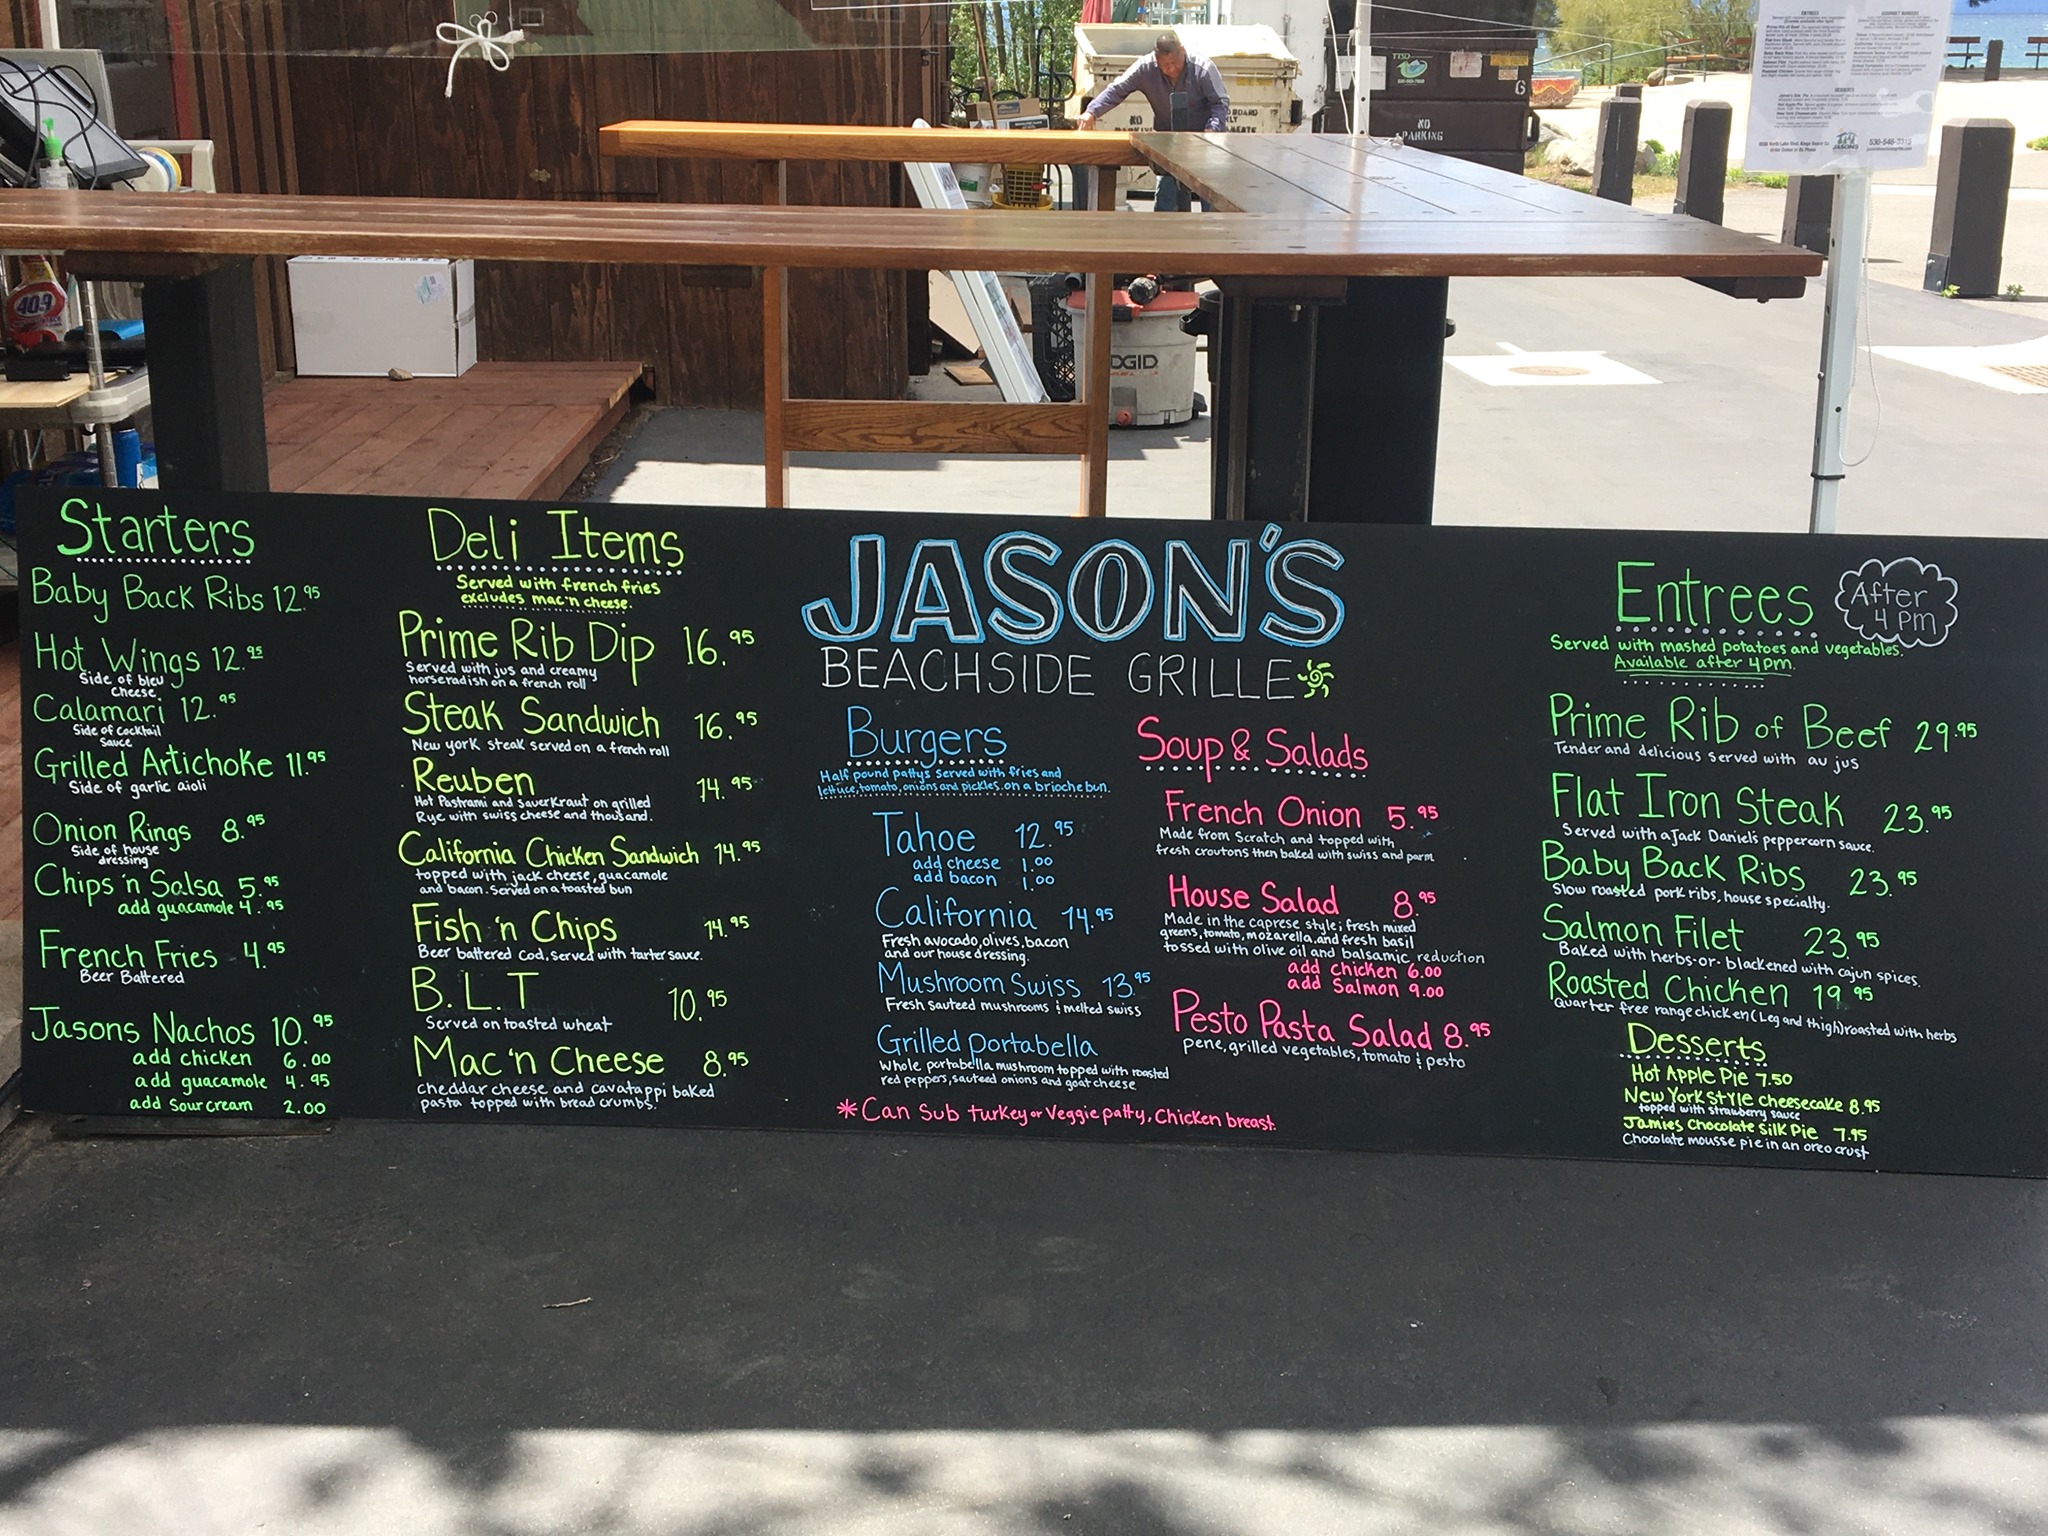 Starters
Baby Back Ribs 12.95
Hot Wings 12.95
Side of bleu
cheese
Calamari 12.95
Side of cocktail
Sauce
Grilled Artichoke 11.95
Side of garlic aioli
Onion Rings 8.95
Side of house
dressing
Chips 'n Salsa 5.95
add guacamole 4.95
French Fries 4.95
Beer Battered
Jasons Nachos 10.95
add chicken 6.00
add guacamole 4.95
add sour cream 2.00
Deli Items
Served with french fries
excludes mac'n cheese.
Prime Rib Dip 16.95
Served with jus and creamy
horseradish on a french roll
Steak Sandwich 16.95
New york steak served on a french roll
Reuben 14.95
Hot Pastrami and Sauerkraut on grilled
Rye with swiss cheese and thousand.
California Chicken Sandwich 14.95
topped with jack cheese, guacamole
and bacon. Served on a toasted bun
Fish 'n Chips 14.95
Beer battered Cod, served with tarter sauce.
B.L.T 10.95
Served on toasted wheat
Mac 'n Cheese 8.95
cheddar cheese and cavatappi baked
pasta topped with bread crumbs.
JASON'S
BEACHSIDE GRILLE
Burgers
Half pound pattys served with fries and
lettuce, tomato, onions and pickles. on a brioche bun.
Tahoe 12.95
add cheese 1.00
add bacon 1.00
California 14.95
Fresh avocado, olives, bacon
and our house dressing.
Mushroom Swiss 13.95
Fresh sauteed mushrooms & melted swiss
Grilled Portabella
Whole portabella mushroom topped with roasted
red peppers, sauteed onions and goat cheese
*Can Sub turkey or Veggie patty, Chicken breast.
Soup & Salads
French Onion 5.95
Made from Scratch and topped with
fresh croutons then baked with swiss and parm
House Salad 8.95
Made in the caprese style; fresh mixed
greens, tomato, mozarella, and fresh basil
tossed with olive oil and balsamic reduction
add chicken 6.00
add Salmon 9.00
Pesto Pasta Salad 8.95
pene, grilled vegetables, tomato & pesto
Entrees
After
4 pm
Served with mashed potatoes and vegetables.
Available after 4pm.
Prime Rib of Beef 29.95
Tender and delicious served with au jus
Flat Iron Steak 23.95
Served with a Jack Daniel's peppercorn sauce.
Baby Back Ribs 23.95
Slow roasted pork ribs, house specialty.
Salmon Filet 23.95
Baked with herbs-or-blackened with cajun spices.
Roasted Chicken 19.95
Quarter free range chicken (Leg and thigh) roasted with herbs
Desserts
Hot Apple Pie 7.50
New York Style Cheesecake 8.95
topped with strawberry sauce
Jamies Chocolate Silk Pie 7.95
Chocolate mousse pie in an oreo crust
409
DGID
NO
PARKING
TTSD
G
NO
ENTREES
DESSERTS
JASON'S
530-546-3315